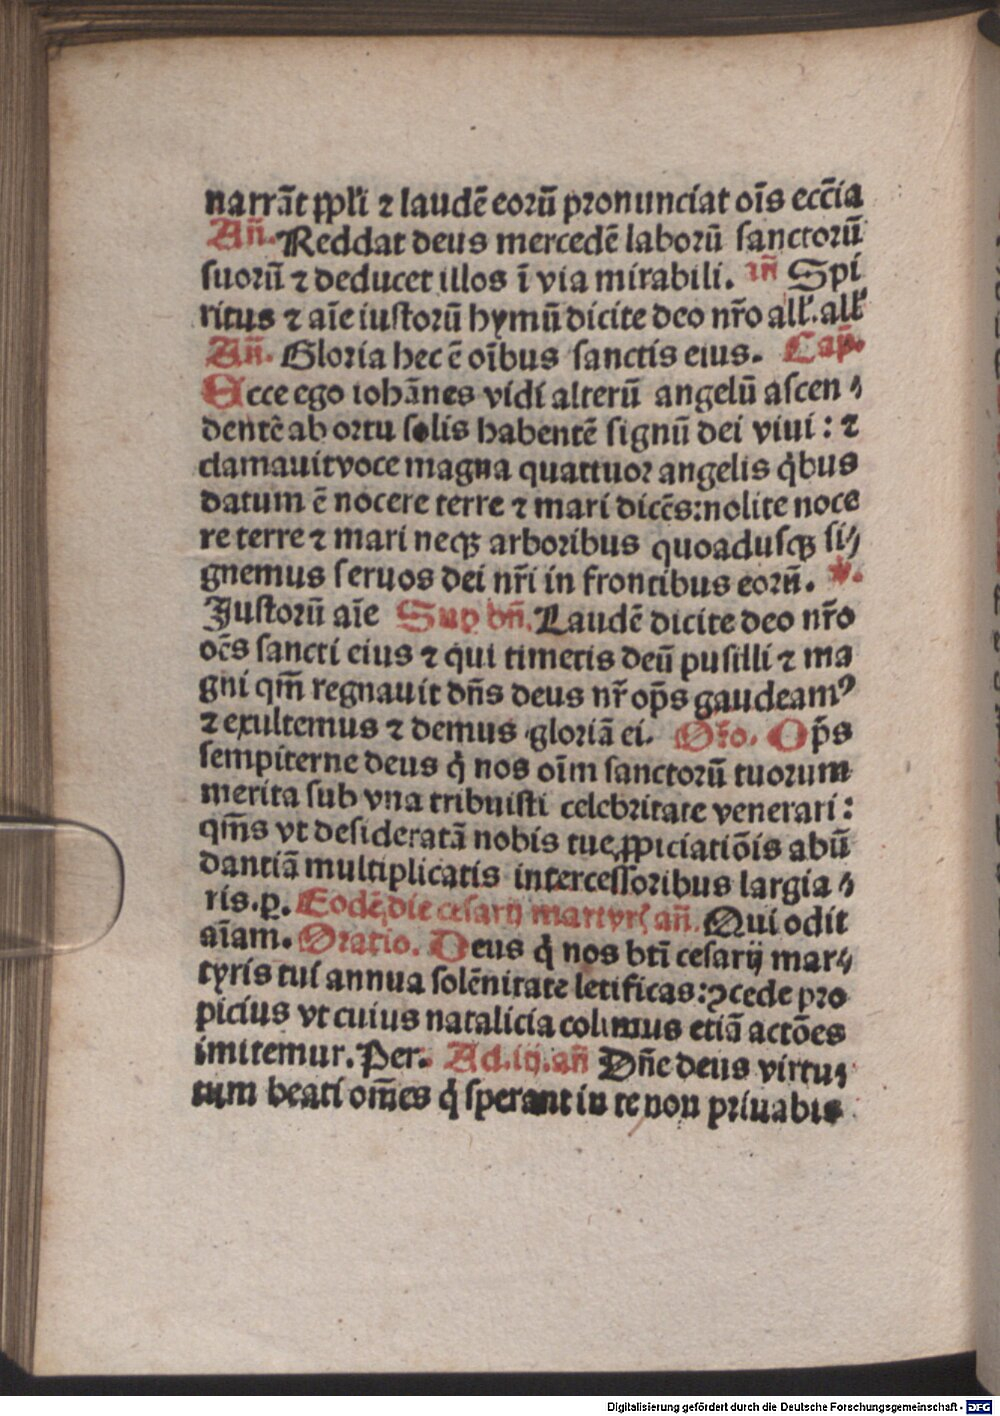 narrāt ꝓpl'i ⁊ laudē eorū pronunciat oīs eccīa
Añ. Reddat deus mercedē laborū sanctorū
suorū ⁊ deducet illos ī via mirabili. in̄ Spi
ritus ⁊ aīe iustorū hymū dicite deo nr̄o all'. all'
Añ. Gloria hec ē oībus sanctis eius. Cap̄.
Ecce ego iohānes vidi alterū angelū ascen⸗
dentē ab ortu solis habentē signū dei viui: ⁊
clamauit voce magna quattuor angelis q̄bus
datum ē nocere terre ⁊ mari dicēs: nolite noce
re terre ⁊ mari neqꝫ arboribus quoadusqꝫ si⸗
gnemus seruos dei nr̄i in frontibus eorū. ℣.
Iustorū aīe Sup bn̄. Laudē dicite deo nr̄o
oēs sancti eius ⁊ qui timetis deū pusilli ⁊ ma
gni qm̄ regnauit dn̄s deus nr̄ op̄s gaudeamꝰ
⁊ exultemus ⁊ demus gloriā ei. Or̄o. Op̄s
sempiterne deus q̄ nos oīm sanctorū tuorum
merita sub vna tribuisti celebritate venerari:
qm̄s vt desideratā nobis tue ꝓpiciatiōis abū
dantiā multiplicatis intercessoribus largia⸗
ris. p. Eodē die cesarij martyrꝭ añ. Qui odit
aīam. Oratio. Deus q̄ nos bt̄i cesarij mar⸗
tyris tui annua solēnitate letificas: ꝯcede pro
picius vt cuius natalicia colimus etiā actōes
imitemur. Per. Ad. iij. añ Dn̄e deus virtu⸗
tum beati om̄es q̄ sperant in te non priuabis
Digitalisierung gefördert durch die Deutsche Forschungsgemeinschaft - DFG